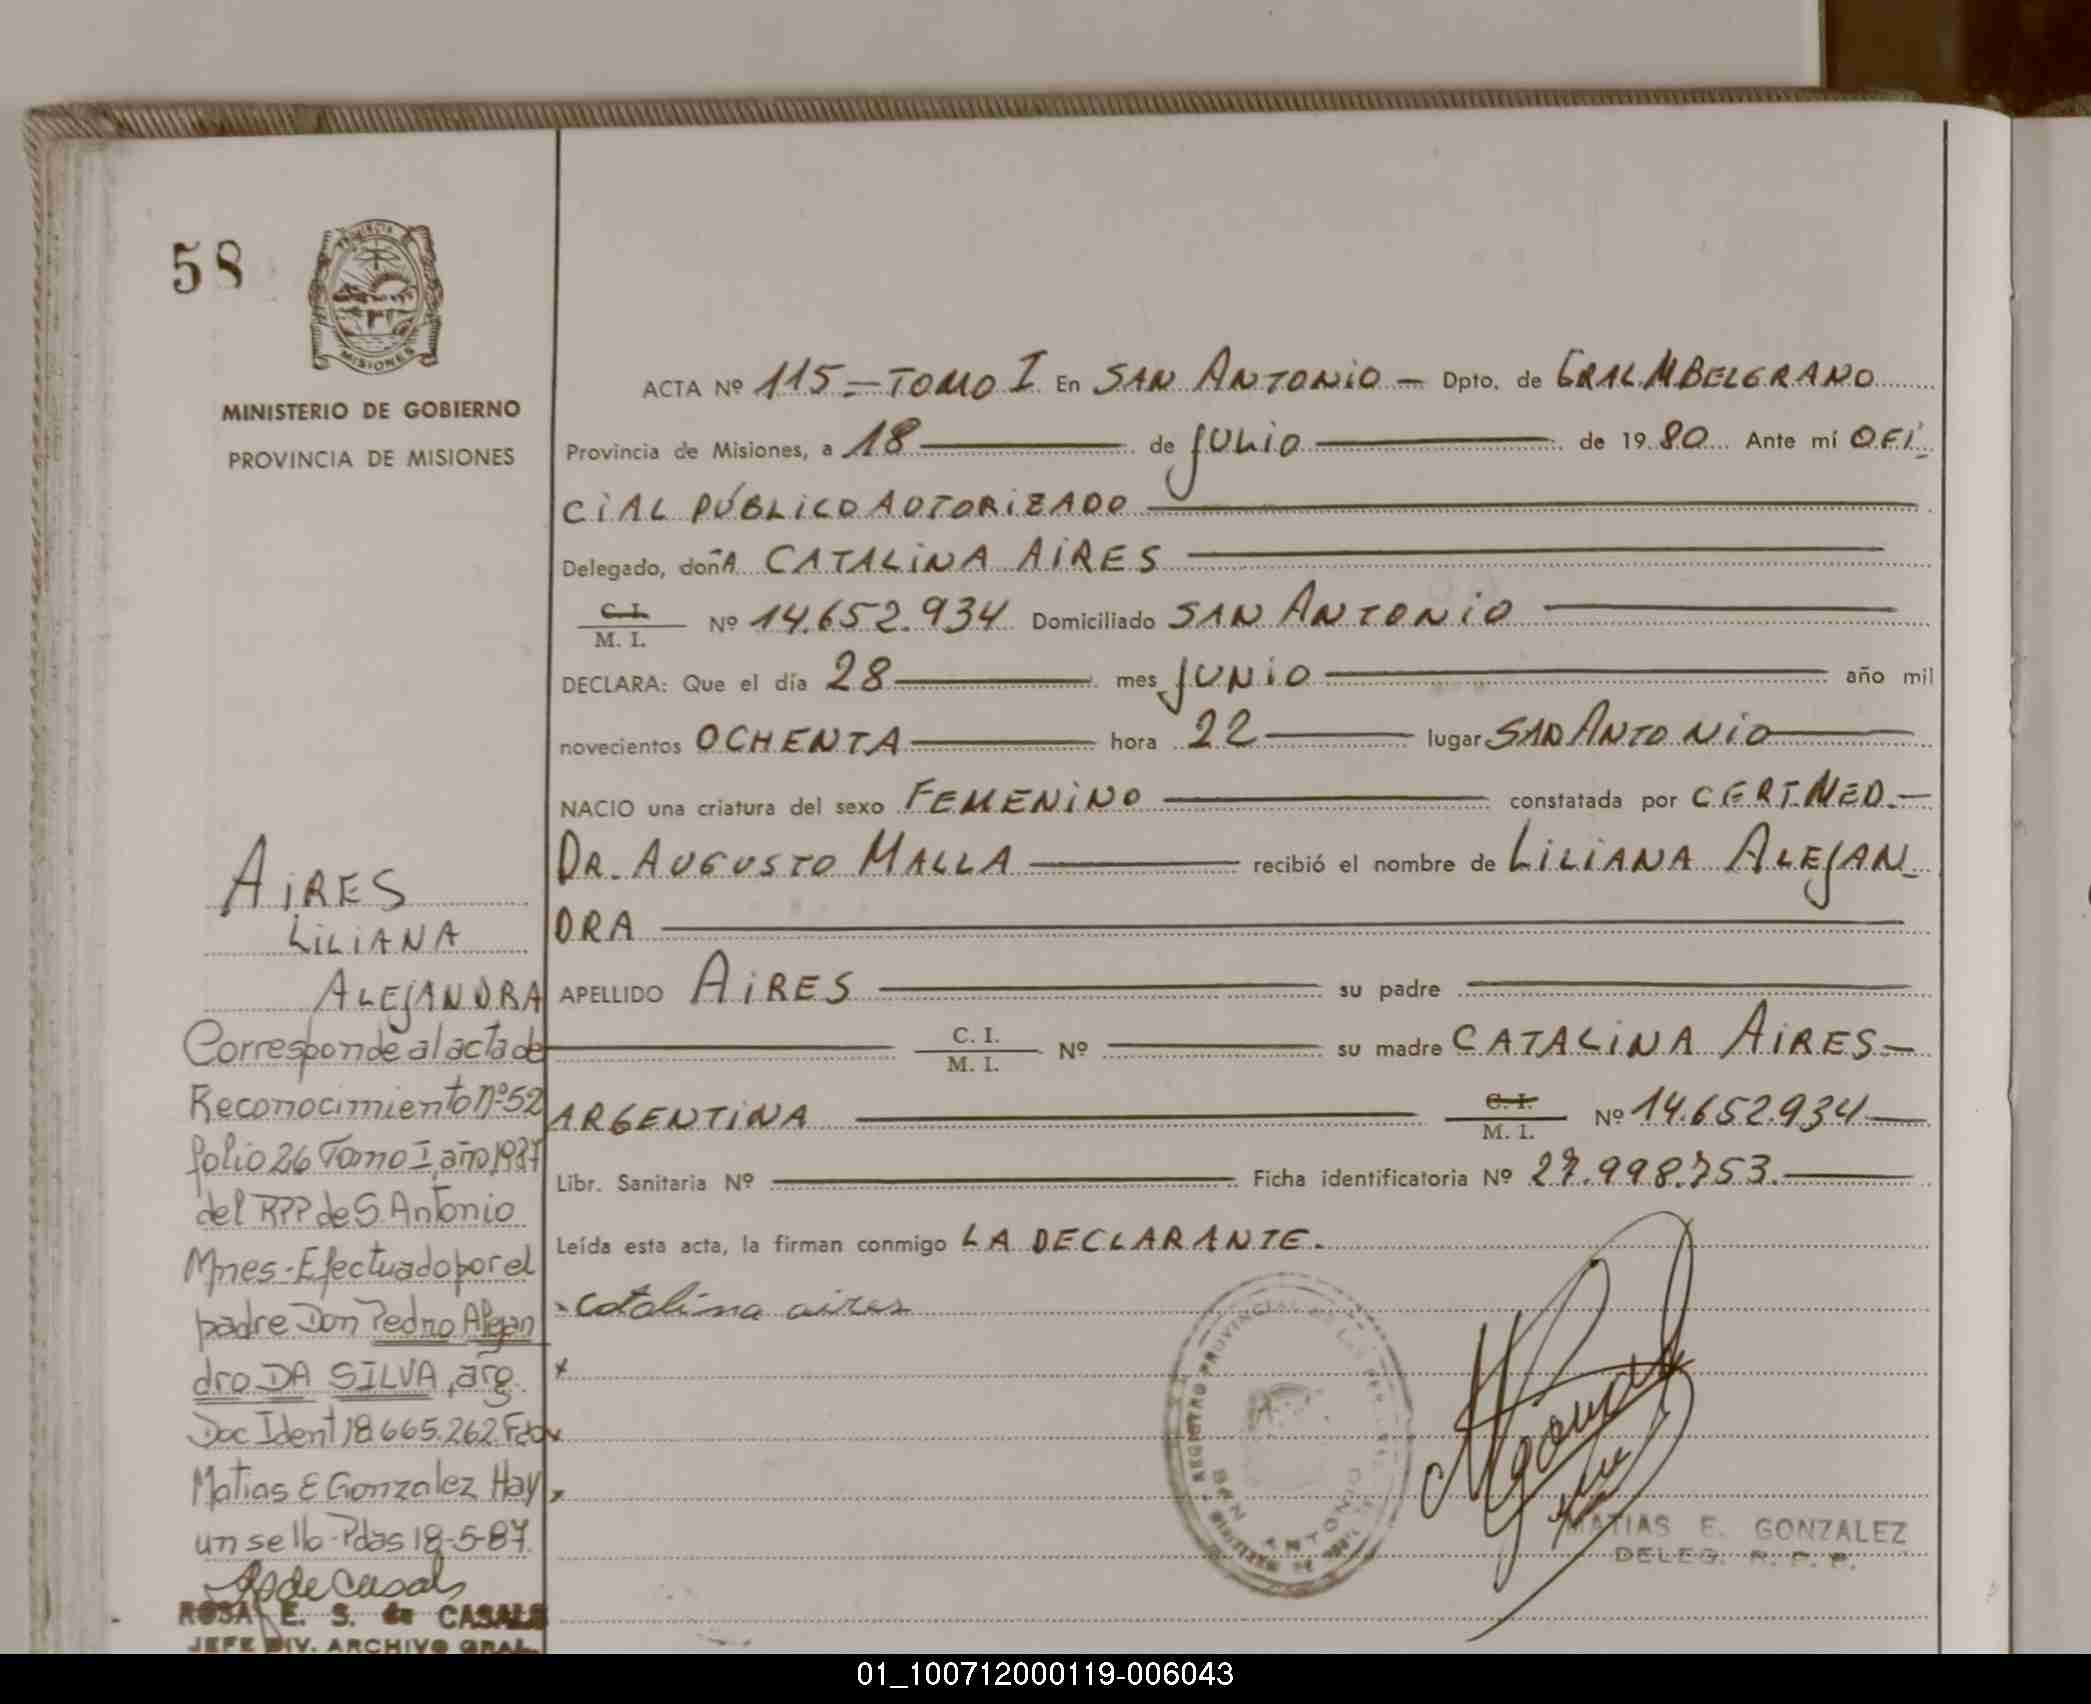 58
PROVINCIA DE
MISIONES
MINISTERIO DE GOBIERNO
PROVINCIA DE MISIONES
ACTA Nº 115 - TOMO I En SAN ANTONIO - Dpto. de GRAL M BELGRANO
Provincia de Misiones, a 18 de JULIO de 1980 Ante mí OFI-
CIAL PÚBLICO AUTORIZADO
Delegado, doñA CATALINA AIRES
C. I.
M. I. Nº 14.652.934 Domiciliado SAN ANTONIO
DECLARA: Que el día 28 mes JUNIO año mil
novecientos OCHENTA hora 22 lugar SAN ANTONIO
NACIO una criatura del sexo FEMENINO constatada por CERT. MED. -
DR. AUGUSTO MALLA recibió el nombre de LILIANA ALEJAN-
DRA
APELLIDO AIRES su padre
C. I.
M. I. Nº su madre CATALINA AIRES -
ARGENTINA C. I.
M. I. Nº 14.652.934
Libr. Sanitaria Nº Ficha identificatoria Nº 27.998.753.
Leída esta acta, la firman conmigo LA DECLARANTE.
catalina aires
AIRES
LILIANA
ALEJANDRA
Corresponde al acta de
Reconocimiento Nº 52
folio 26 Tomo I, año 1987
del RPP de S. Antonio
Mnes - Efectuado por el
padre Don Pedro Alejan
dro DA SILVA, arg.
Doc Ident 18.665.262 Fdo
Matias E Gonzalez Hay
un sello - Pdas 18-5-87.
RS de Casals
ROSA E. S. de CASALS
JEFE DIV. ARCHIVO GRAL.
REGISTRO PROVINCIAL DE LAS PERSONAS
SAN ANTONIO
M Gonzalez
MATIAS E. GONZALEZ
DELEG. R. P. P.
01_100712000119-006043